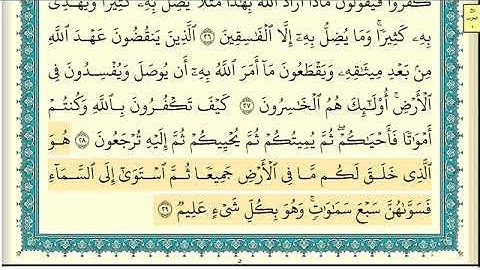 كَفَرُوا۟ فَيَقُولُونَ مَاذَآ أَرَادَ ٱللَّهُ بِهَٰذَا مَثَلًا يُضِلُّ بِهِۦ كَثِيرًا وَيَهْدِى
بِهِۦ كَثِيرًا ۚ وَمَا يُضِلُّ بِهِۦٓ إِلَّا ٱلْفَٰسِقِينَ ٢٦ ٱلَّذِينَ يَنقُضُونَ عَهْدَ ٱللَّهِ
مِنۢ بَعْدِ مِيثَٰقِهِۦ وَيَقْطَعُونَ مَآ أَمَرَ ٱللَّهُ بِهِۦٓ أَن يُوصَلَ وَيُفْسِدُونَ فِى
ٱلْأَرْضِ ۚ أُو۟لَٰٓئِكَ هُمُ ٱلْخَٰسِرُونَ ٢٧ كَيْفَ تَكْفُرُونَ بِٱللَّهِ وَكُنتُمْ
أَمْوَٰتًا فَأَحْيَٰكُمْ ۖ ثُمَّ يُمِيتُكُمْ ثُمَّ يُحْيِيكُمْ ثُمَّ إِلَيْهِ تُرْجَعُونَ ٢٨ هُوَ
ٱلَّذِى خَلَقَ لَكُم مَّا فِى ٱلْأَرْضِ جَمِيعًا ثُمَّ ٱسْتَوَىٰٓ إِلَى ٱلسَّمَآءِ
فَسَوَّىٰهُنَّ سَبْعَ سَمَٰوَٰتٍ ۚ وَهُوَ بِكُلِّ شَىْءٍ عَلِيمٌ ٢٩